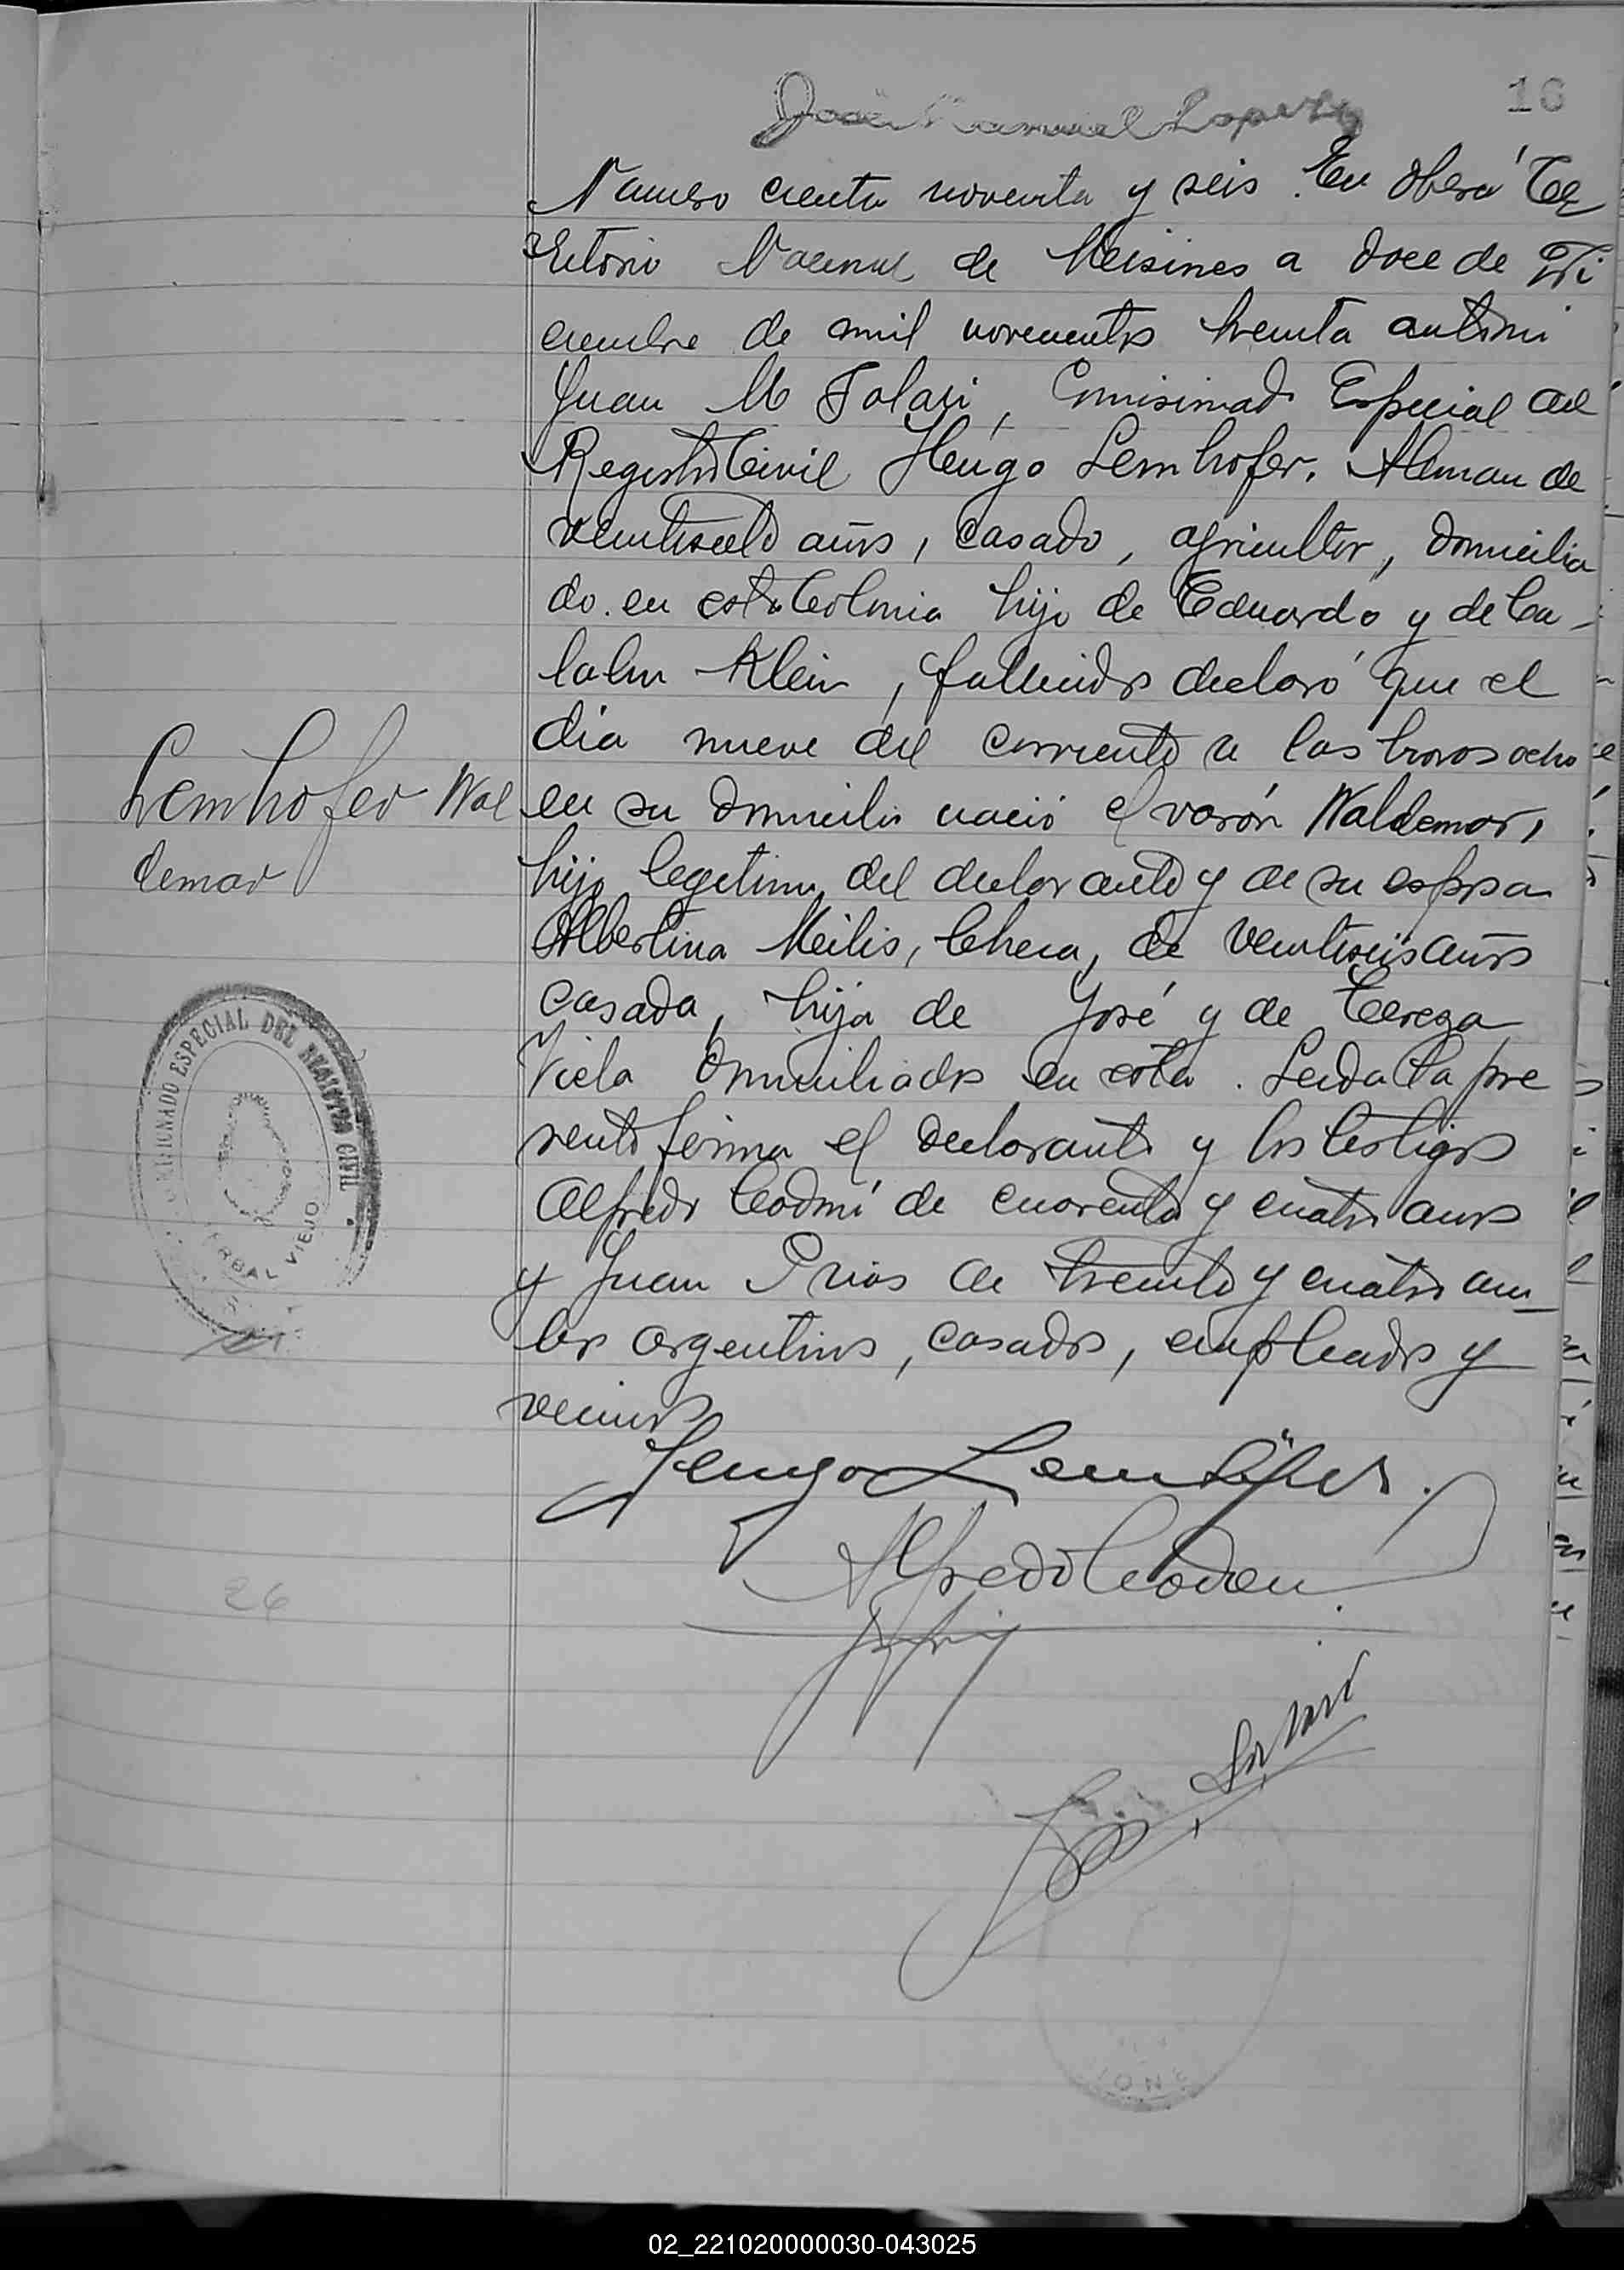 José Manuel Lopez
16
Numero ciento noventa y seis. En Oberá Te
rritorio Nacional de Misiones a doce de Di
ciembre de mil novecientos treinta ante mi
Juan M Solari, Comisionado Especial del
Registro Civil Hugo Lemhofer. Aleman de
veintisiete años, casado, agricultor, domicilia
do en esta Colonia hijo de Eduardo y de Ca-
talin Klein, fallecidos declaró que el
día nueve del corriente a las horas ocho
Lemhofer Wal
demar
en su domicilio nació el varón Waldemar,
hijo legitimo del declarante y de su esposa
Albertina Meilis, Checa, de veintiseis años
casada, hija de José y de Tereza
Viela domiciliados en esta. Leida la pre
sente firma el declarante y los testigos
Alfredo de cuarenta y cuatro años
y Juan Prios de treinta y cuatro am-
bos argentinos, casados, empleados y
vecinos
COMISIONADO ESPECIAL DEL REGISTRO CIVIL
YERBAL VIEJO
Hugo Lemhöfer.
Alfredo
26
IONE
02_221020000030-043025